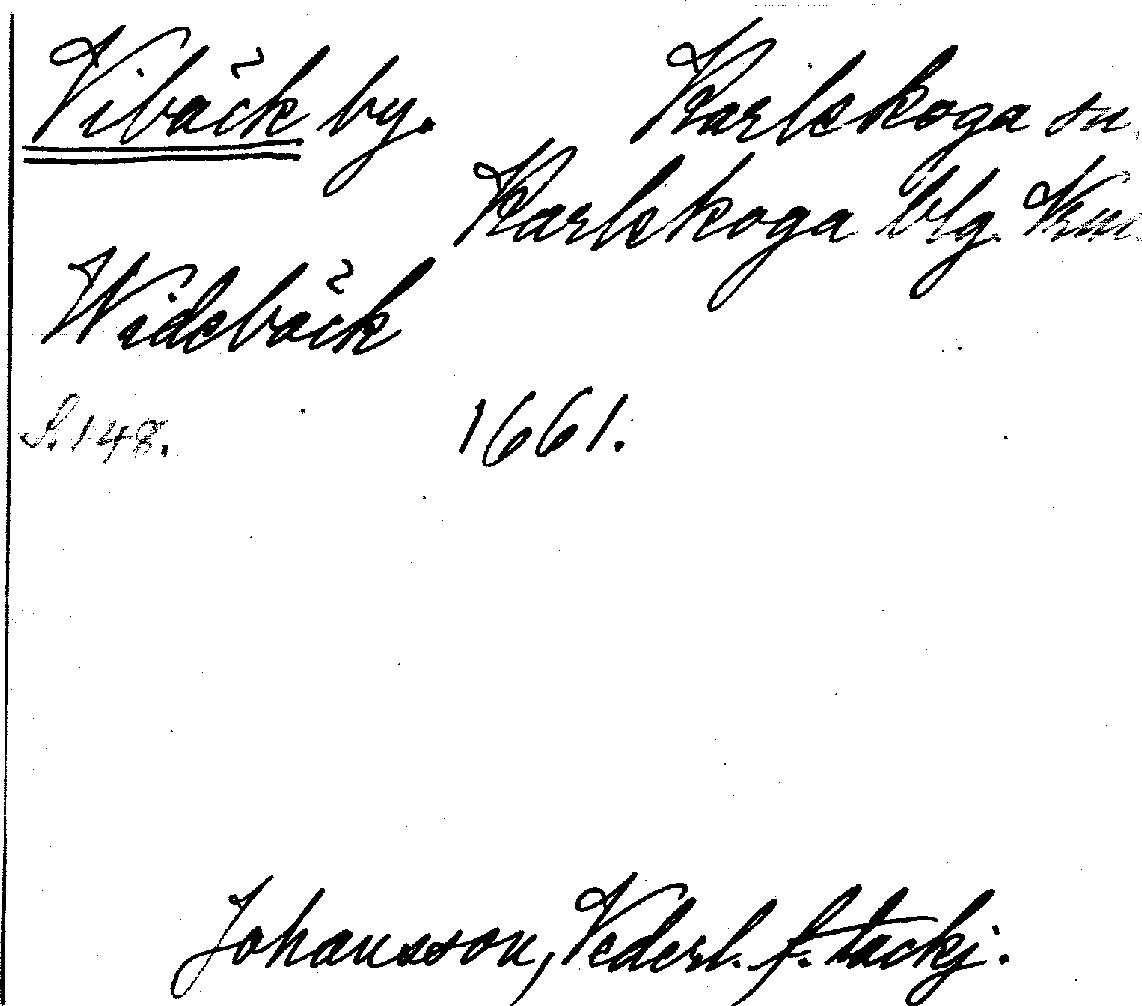 Vibäck by. Karlskoga sn.
Karlskoga blg.
Widebäck
S. 148. 1661.
Johansson, Vederl. f. tackj.